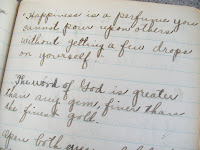 "Happiness is a perfume you
cannot pour upon others
without getting a few drops
on yourself."
The word of God is greater
than any gem, finer than
the finest gold.
upon both